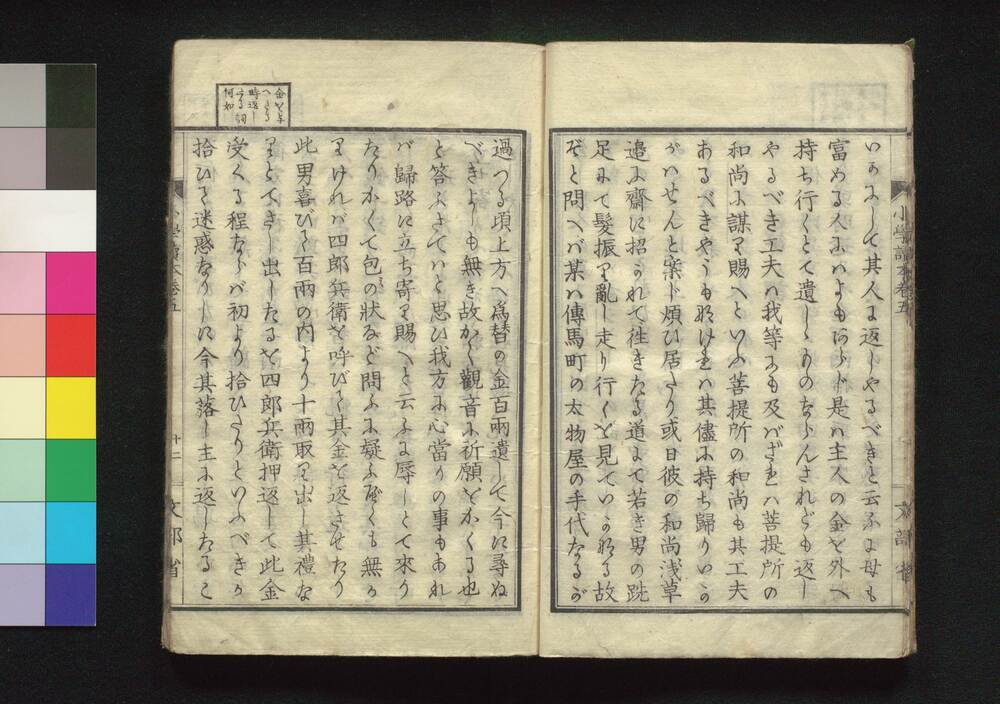 いかにして其人に返しやるべきと云ふに母も
富める人にハよもあらじ是ハ主人の金を外へ
持ち行くとて遺しゝものならんされども返し
やるべき工夫ハ我等にも及バざれハ菩提所の
和尚に謀り賜へといふ菩提所の和尚も其工夫
あるべきやうも無けれハ其儘に持ち歸りいか
がハせんと案じ煩ひ居たり或日彼の和尚浅草
邉に齋に招かれて徃きたる道にて若き男の跣
足にて髮振り亂し走り行くを見ていかなる故
ぞと問へバ某ハ傳馬町の太物屋の手代なるが
小學讀本卷五
文部省
過つる頃上方へ爲替の金百兩遺して今に尋ね
べきよしも無き故かく觀音に祈願をかくる也
と答ふさてハと思ひ我方に心當りの事もあれ
バ歸路に立ち寄り賜へと云ふに辱しとて來り
たりかくて包の狀など問ふに疑ふ所くも無か
りけれバ四郎兵衛を呼びて其金を返させたり
此男喜びて百兩の内より十兩取り出し其禮な
りとてさし出したるを四郎兵衛押返して此金
受くる程ならバ初より拾ひたりといふべきか
拾ひて迷惑なりしに今其落し主に返したるこ
金を与
へたる
時返し
たる詞
何如
小學讀本卷五
十二
文部省